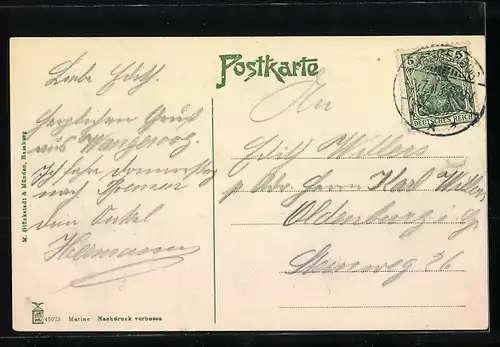 Postkarte
Liebe Edith.
Herzlichen Gruß
aus Wangeroog.
Ich fahre Donnerstag
nach Bremen
dein Onkel
Hermann
An
Edith Willers
p Adr. Herrn Karl Willers
Oldenburg i. Gr
Steinweg 26
5
DEUTSCHES REICH
M. Glückstadt & Münden, Hamburg
Marine Nachdruck verboten